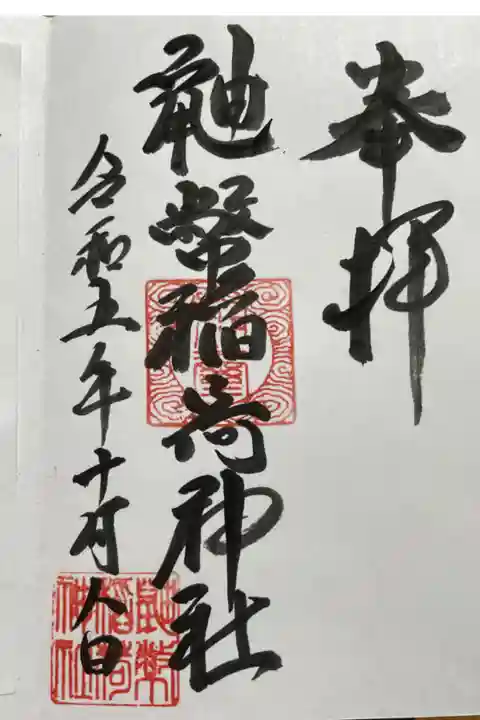 奉拝
鼬幣稲荷神社
令和五年十月八日
鼬幣
稲荷
神社